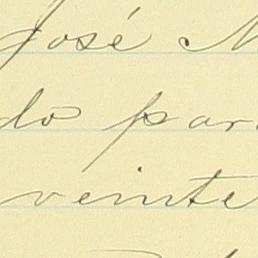 José M
do par
veinte